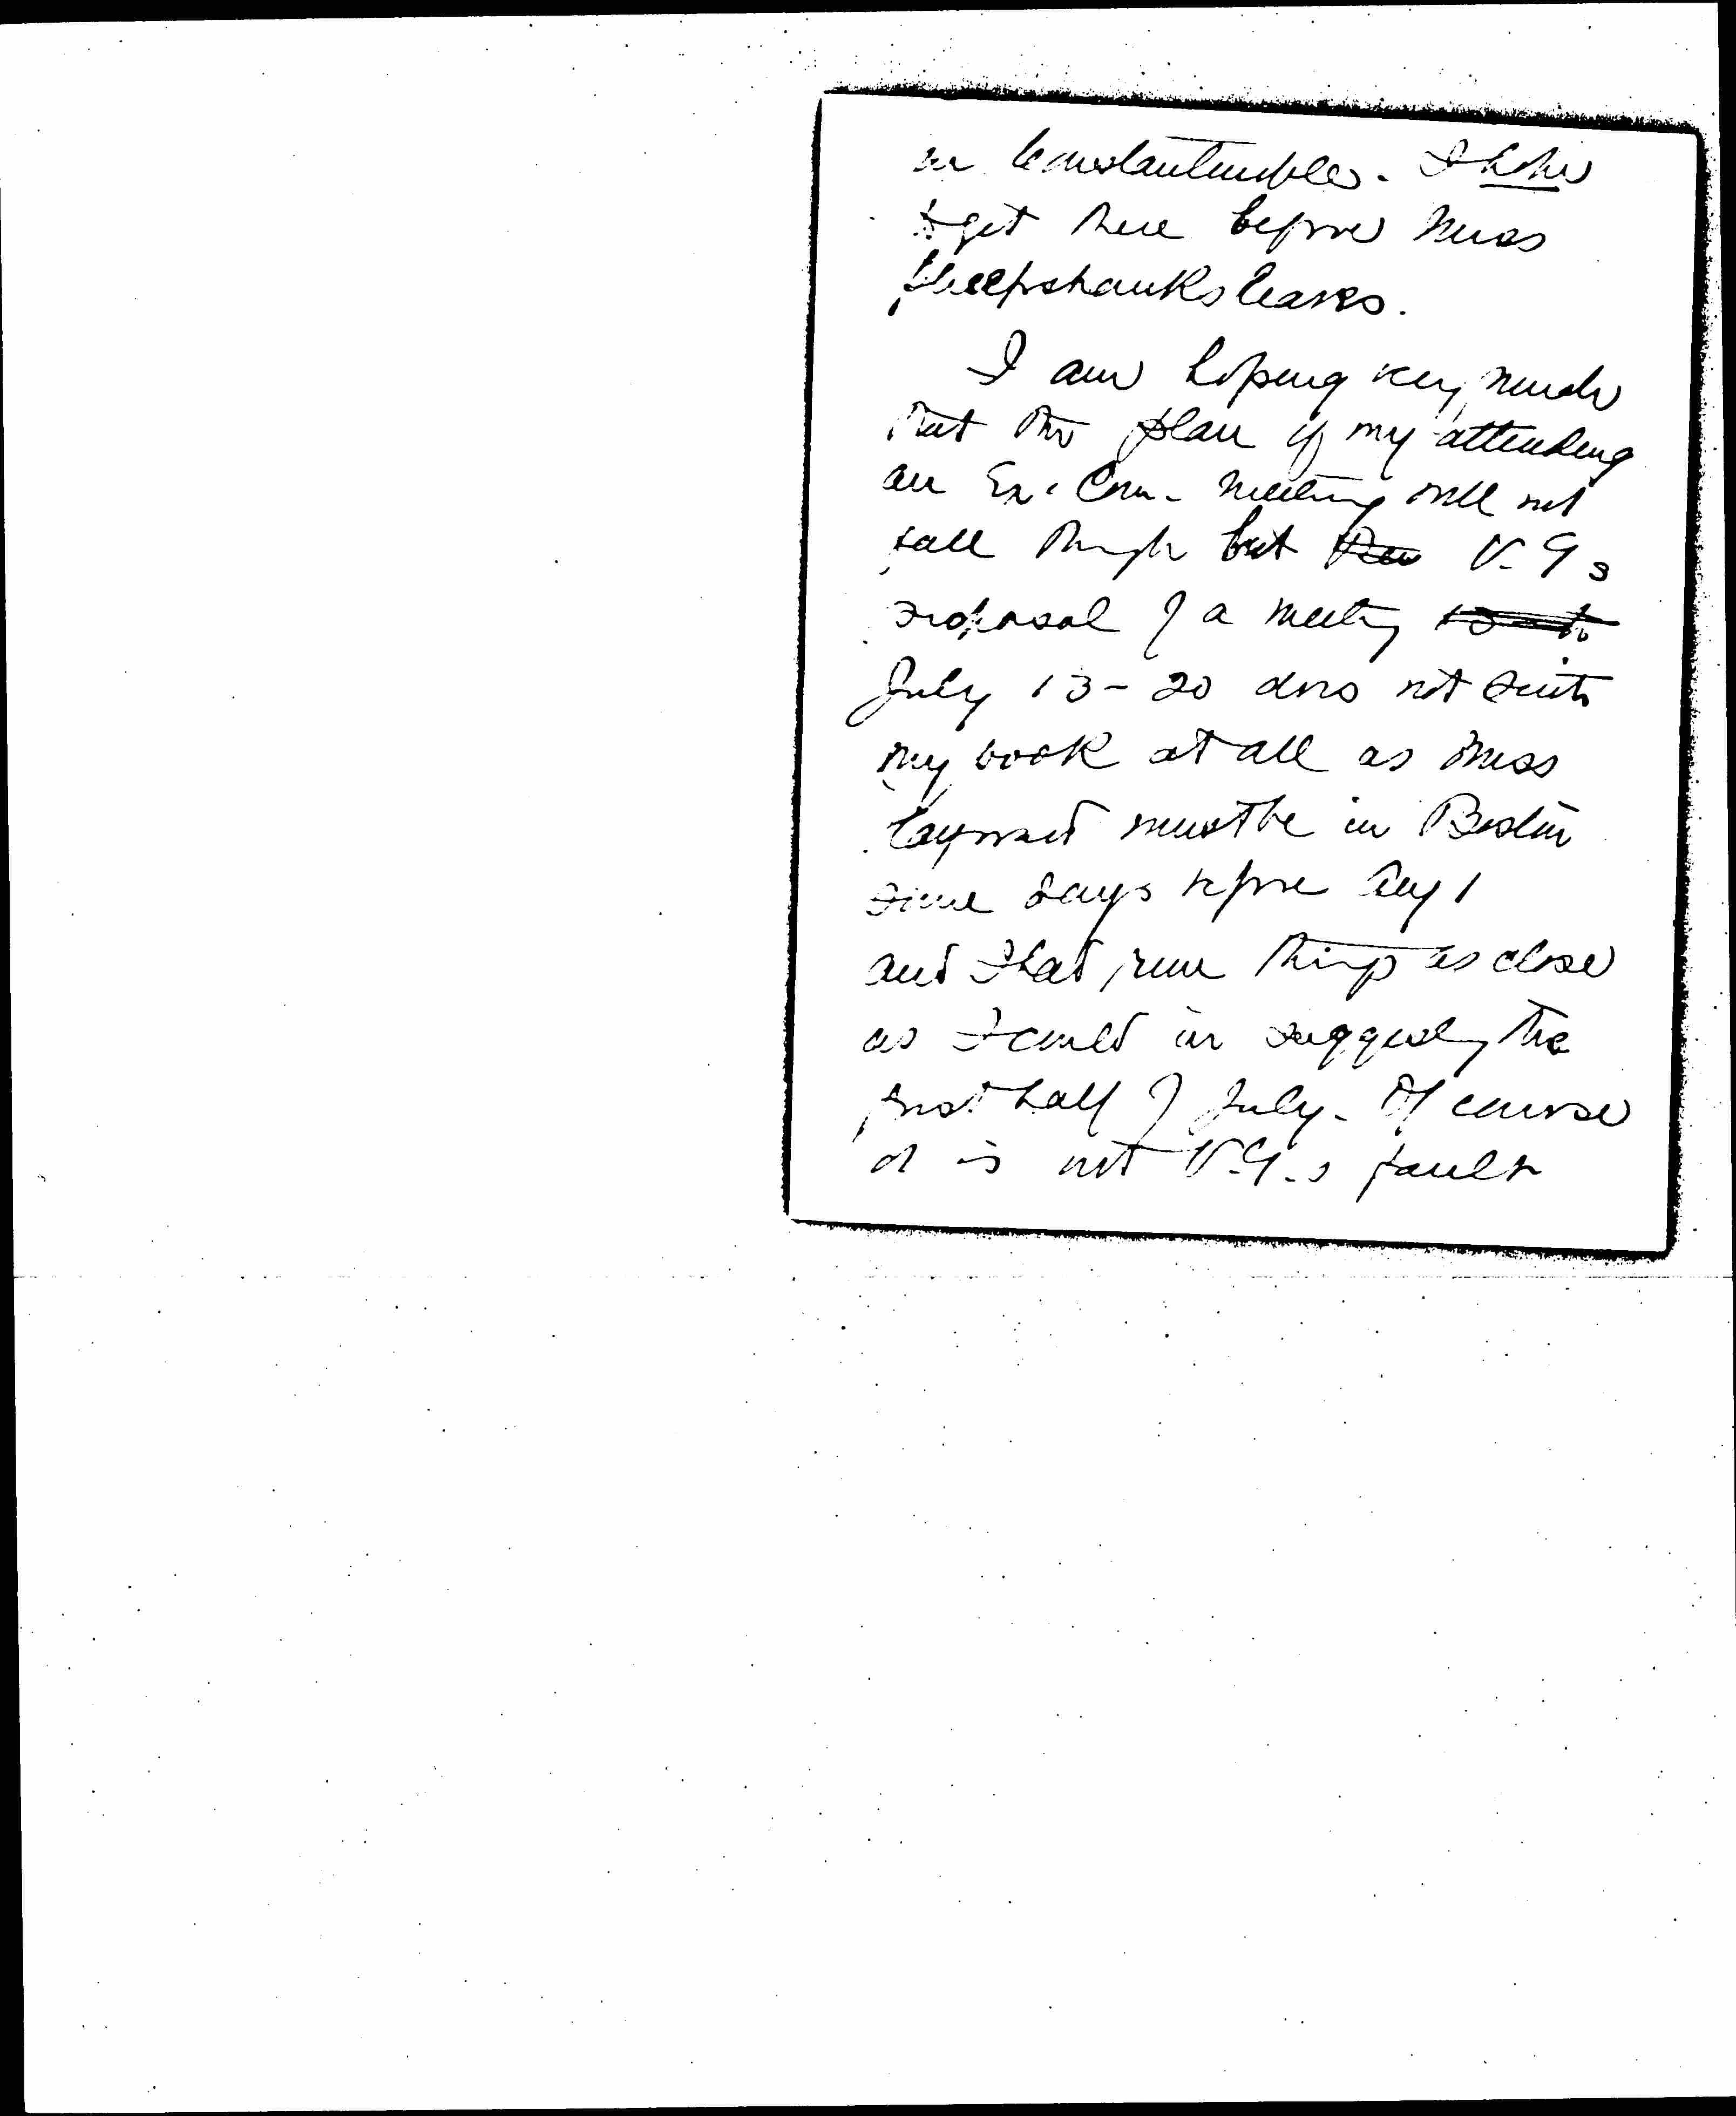 in Constantinople. I hope
I get there before Miss
Sheepshanks leaves.
I am hoping very much
that the plan of my attending
an Ex. Com. meeting will not
fall through but V. G s
proposal of a meeting
July 13-20 does not suit
my book at all as Miss
must be in Boston
some days before Aug 1
and I had run things as close
as I could in suggesting the
first half of July. Of course
it is not V.G.s fault